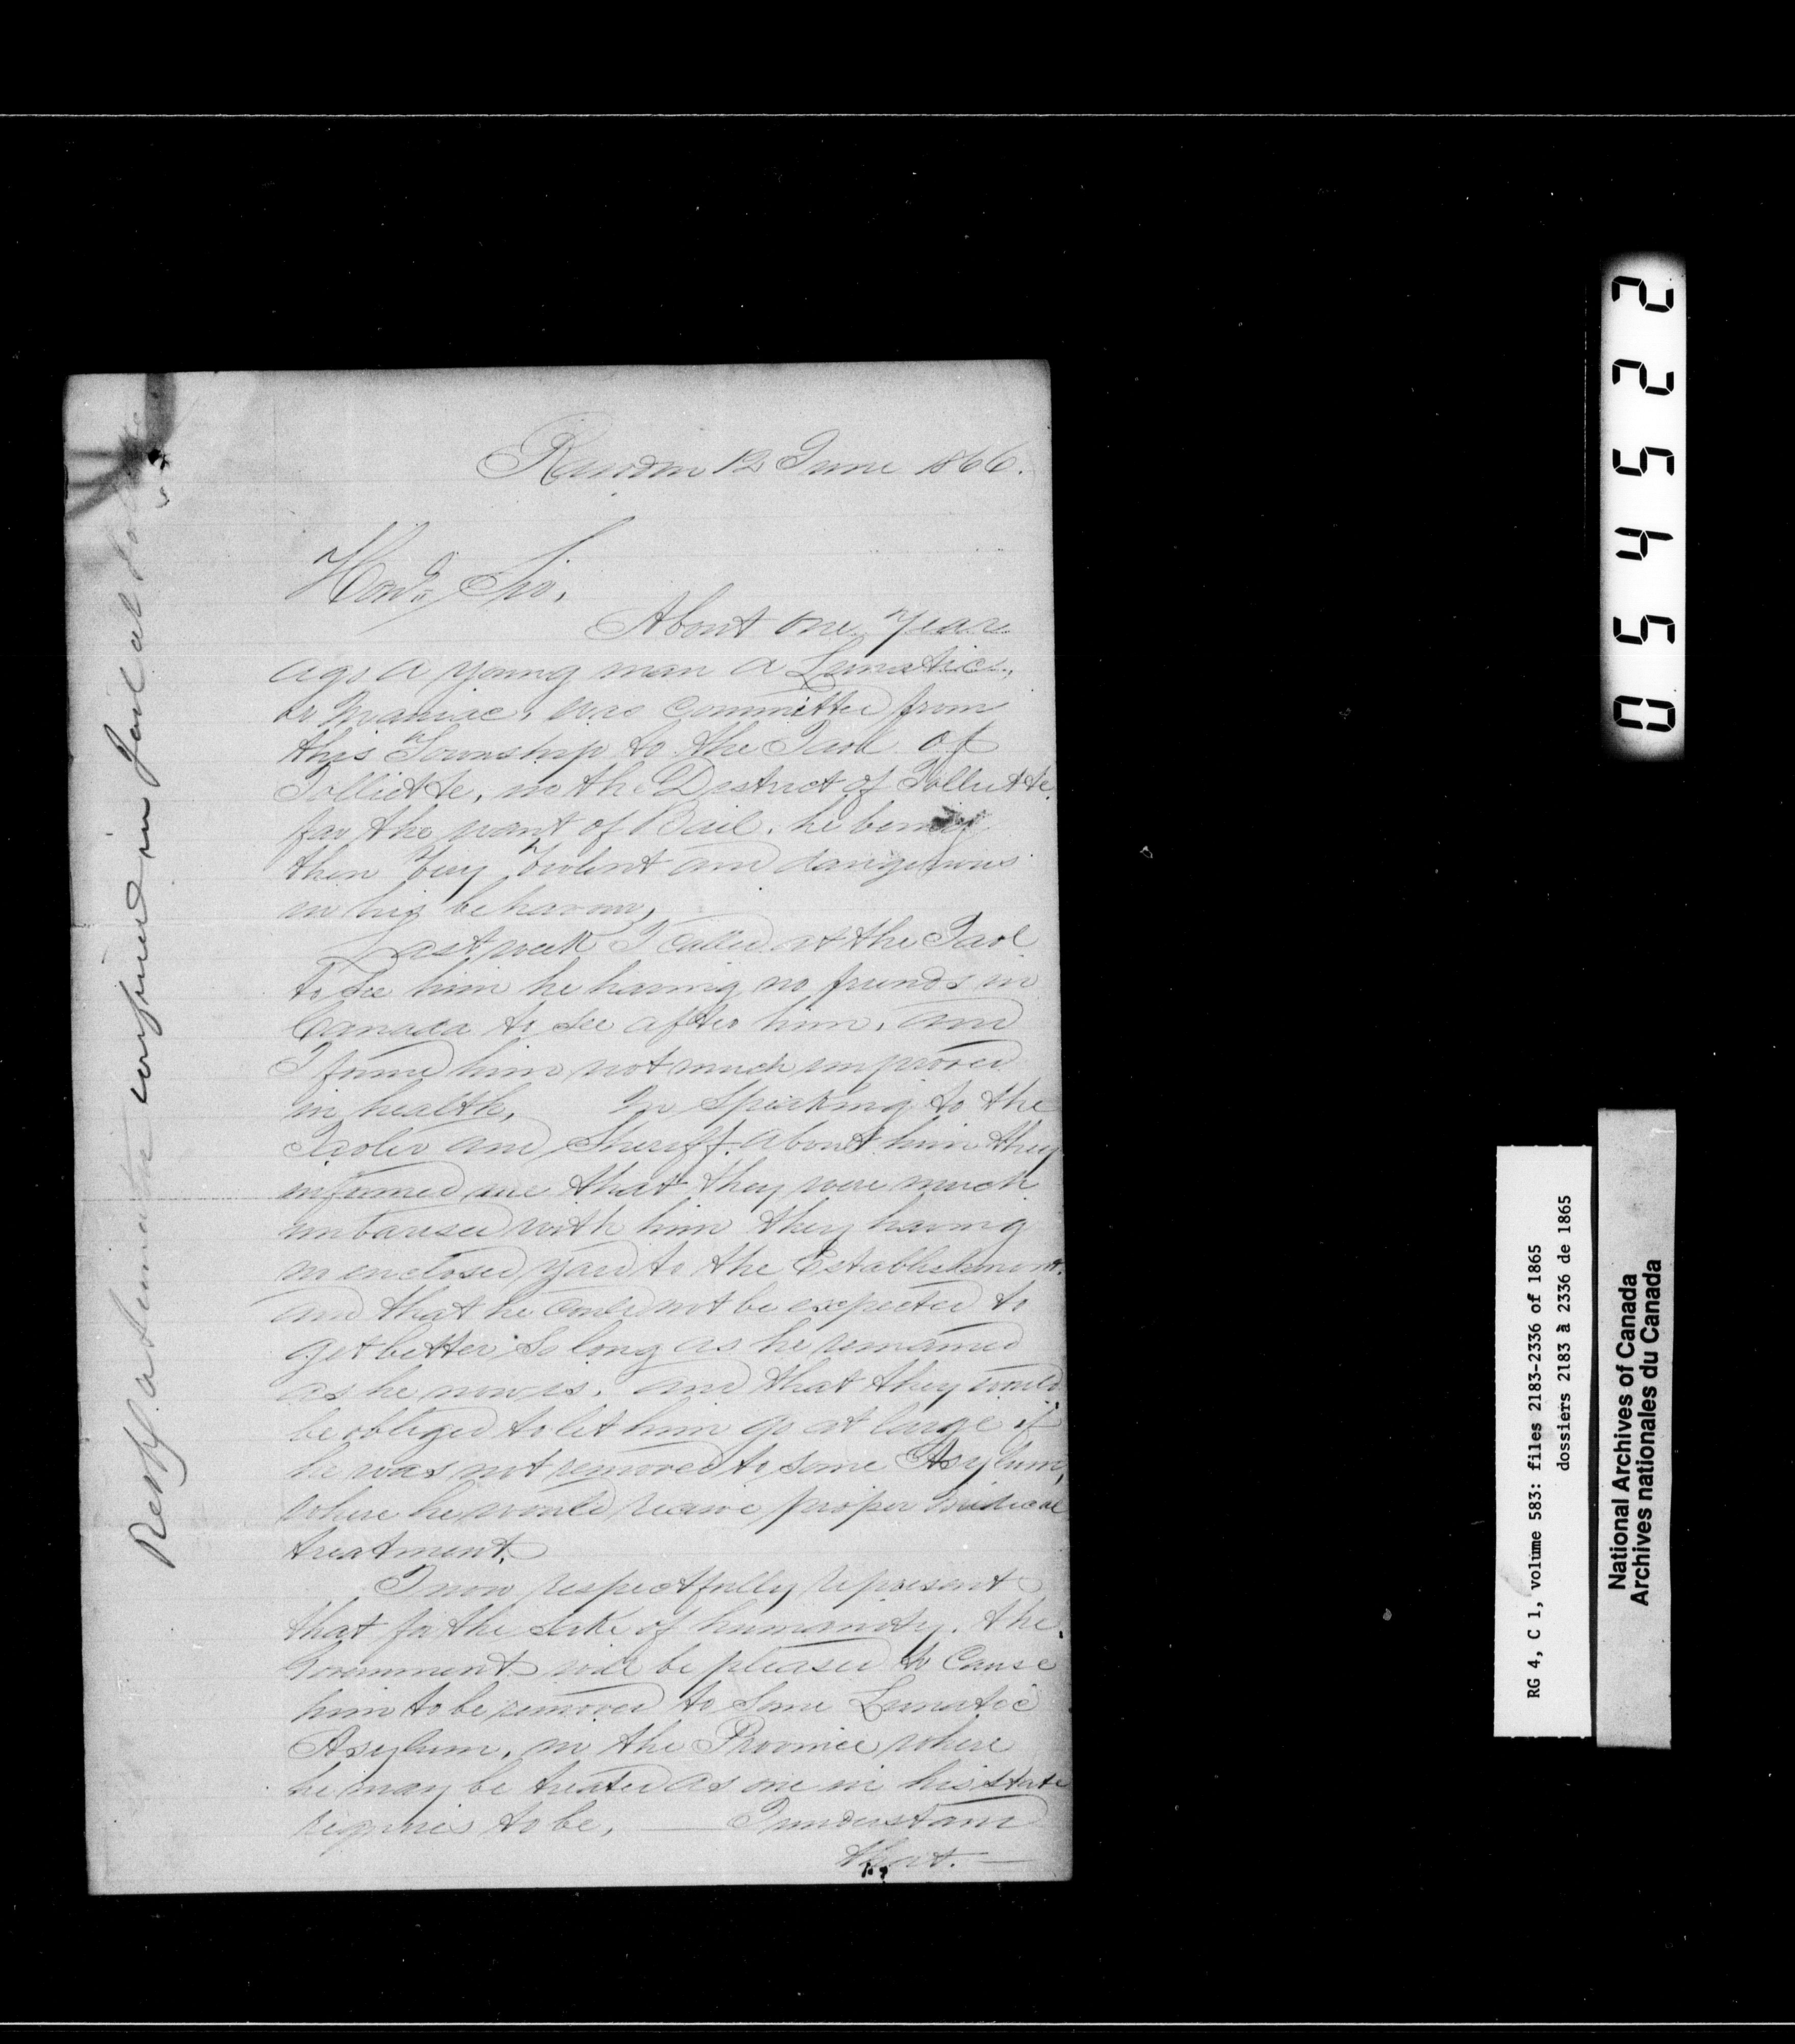 Rawdon 12 June 1866.
Hond. Sir,
About one year
ago a young man a Lunatic,
or Maniac, was committed from
this Township to the Jaol of
Jolliette, in the District of Jolliette,
for the want of Bail. he being
then very violent and dangerous
in his behavour,
Last week I called at the Jaol
to see him he having no friends in
Canada to see after him, and
I found him not much improved
in health, In speaking to the
Jaoler and Sheriff about him they
informed me that they were much
imbarised with him they having
no enclosed yard to the Establishment.
and that he could not be expected to
get better so long as he remained
as he now is. and that they would
be obliged to let him go at large if
he was not removed to some Asylum,
where he would receive proper Medical
treatment.
I now respectfully represent
that for the sake of humanity. the
Government will be pleased to cause
him to be removed to some Lunatic
Asylum, in the Province where
he may be treated as one in his state
requires to be, — I understand
that. —
Resp. a Lunatic confined in Jail at
054522
RG 4, C 1, volume 583: files 2183-2336 of 1865
dossiers 2183 à 2336 de 1865
National Archives of Canada
Archives nationales du Canada